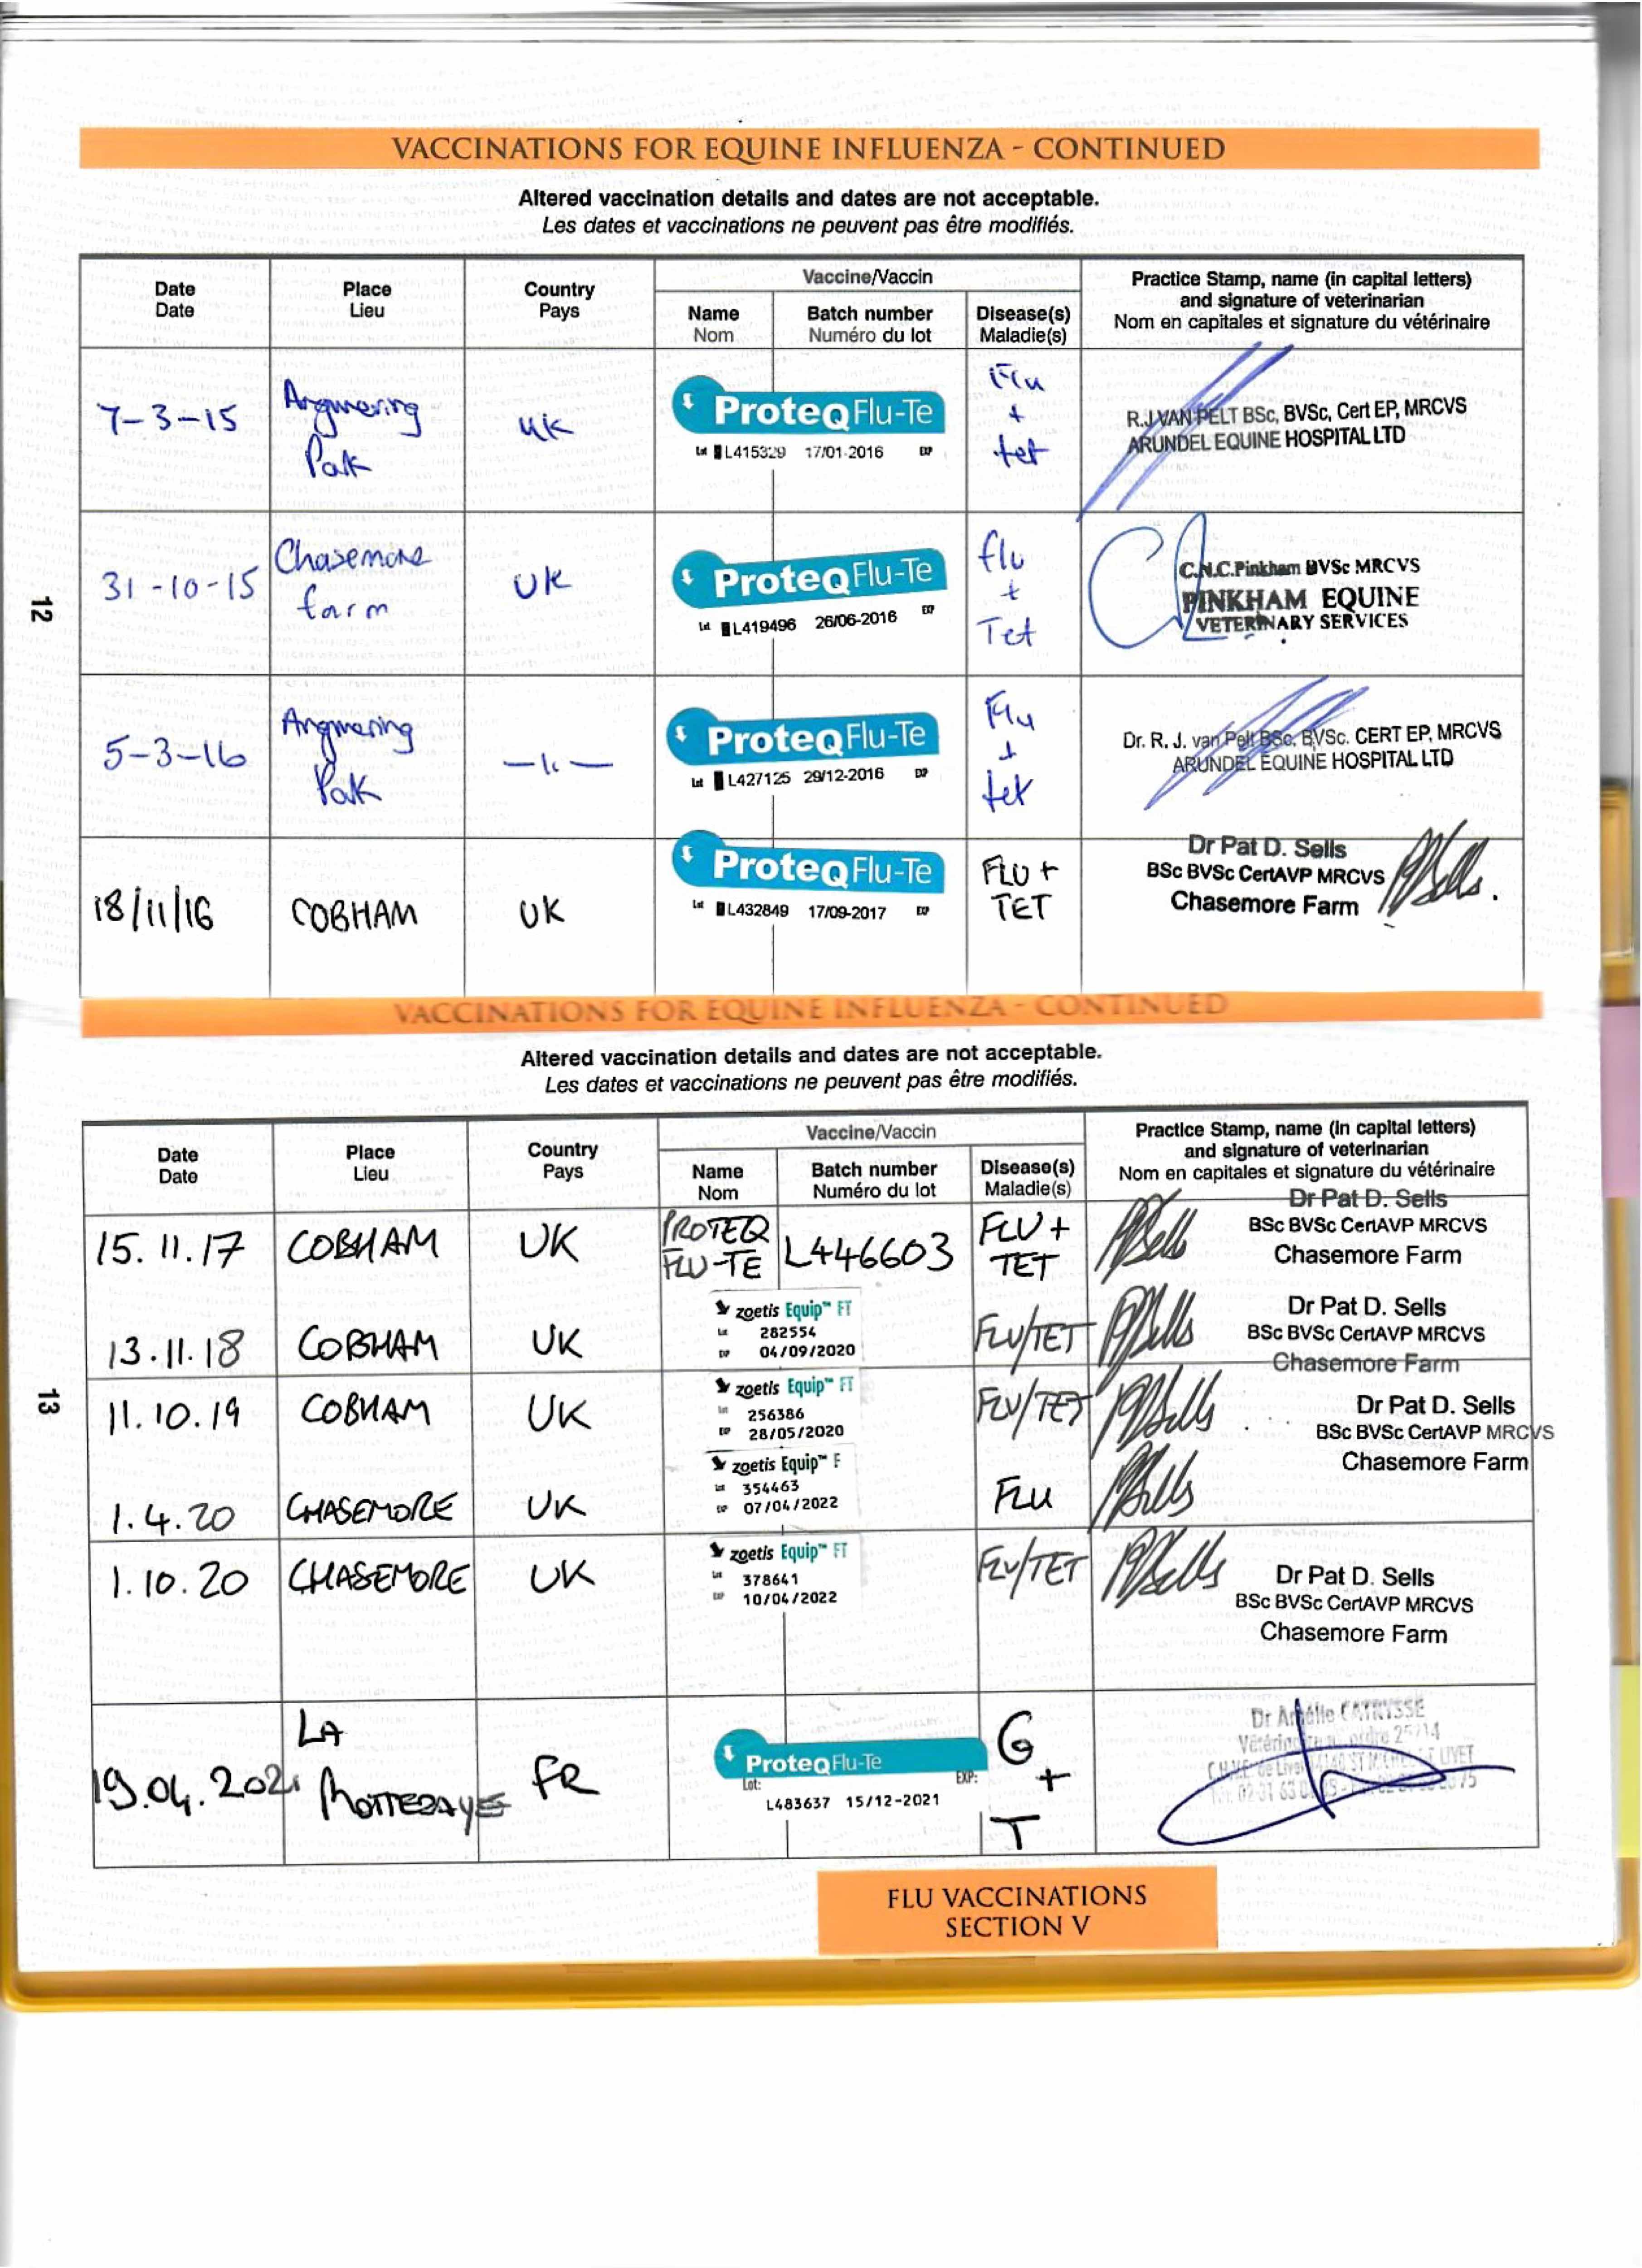 VACCINATIONS FOR EQUINE INFLUENZA - CONTINUED
Altered vaccination details and dates are not acceptable.
Les dates et vaccinations ne peuvent pas être modifiés.
Date Place Country Vaccine/Vaccin Practice Stamp, name (in capital letters)
Date Lieu Pays and signature of veterinarian
Name Batch number Disease(s) Nom en capitales et signature du vétérinaire
Nom Numéro du lot Maladie(s)
7-3-15 Angmering UK ProteqFlu-Te Flu R.J VAN PELT BSc, BVSc, Cert EP, MRCVS
Park Lot L415329 17/01-2016 EXP + ARUNDEL EQUINE HOSPITAL LTD
tet
31-10-15 Chasemore UK ProteqFlu-Te flu C.N.C.Pinkham BVSc MRCVS
farm Lot L419496 26/06-2016 EXP + PINKHAM EQUINE
Tet VETERINARY SERVICES
12
5-3-16 Angmering —"— ProteqFlu-Te Flu Dr. R. J. van Pelt BSc, BVSc. CERT EP, MRCVS
Park Lot L427125 29/12-2016 EXP + ARUNDEL EQUINE HOSPITAL LTD
tet
18/11/16 COBHAM UK ProteqFlu-Te FLU + Dr Pat D. Sells
Lot L432849 17/09-2017 EXP TET BSc BVSc CertAVP MRCVS
Chasemore Farm
VACCINATIONS FOR EQUINE INFLUENZA - CONTINUED
Altered vaccination details and dates are not acceptable.
Les dates et vaccinations ne peuvent pas être modifiés.
Date Place Country Vaccine/Vaccin Practice Stamp, name (in capital letters)
Date Lieu Pays and signature of veterinarian
Name Batch number Disease(s) Nom en capitales et signature du vétérinaire
Nom Numéro du lot Maladie(s)
15.11.17 COBHAM UK PROTEQ L446603 FLU + Dr Pat D. Sells
FLU-TE TET BSc BVSc CertAVP MRCVS
Chasemore Farm
13.11.18 COBHAM UK zoetis Equip™ FT FLU/TET Dr Pat D. Sells
Lot 282554 BSc BVSc CertAVP MRCVS
EXP 04/09/2020 Chasemore Farm
11.10.19 COBHAM UK zoetis Equip™ FT FLU/TET Dr Pat D. Sells
Lot 256386 BSc BVSc CertAVP MRCVS
EXP 28/05/2020 Chasemore Farm
13
1.4.20 CHASEMORE UK zoetis Equip™ F FLU
Lot 354463
EXP 07/04/2022
1.10.20 CHASEMORE UK zoetis Equip™ FT FLU/TET Dr Pat D. Sells
Lot 378641 BSc BVSc CertAVP MRCVS
EXP 10/04/2022 Chasemore Farm
19.04.2021 LA FR ProteqFlu-Te G Dr Amélie CATRYSSE
MOTTERAYE Lot: EXP: +
L483637 15/12-2021 T
FLU VACCINATIONS
SECTION V